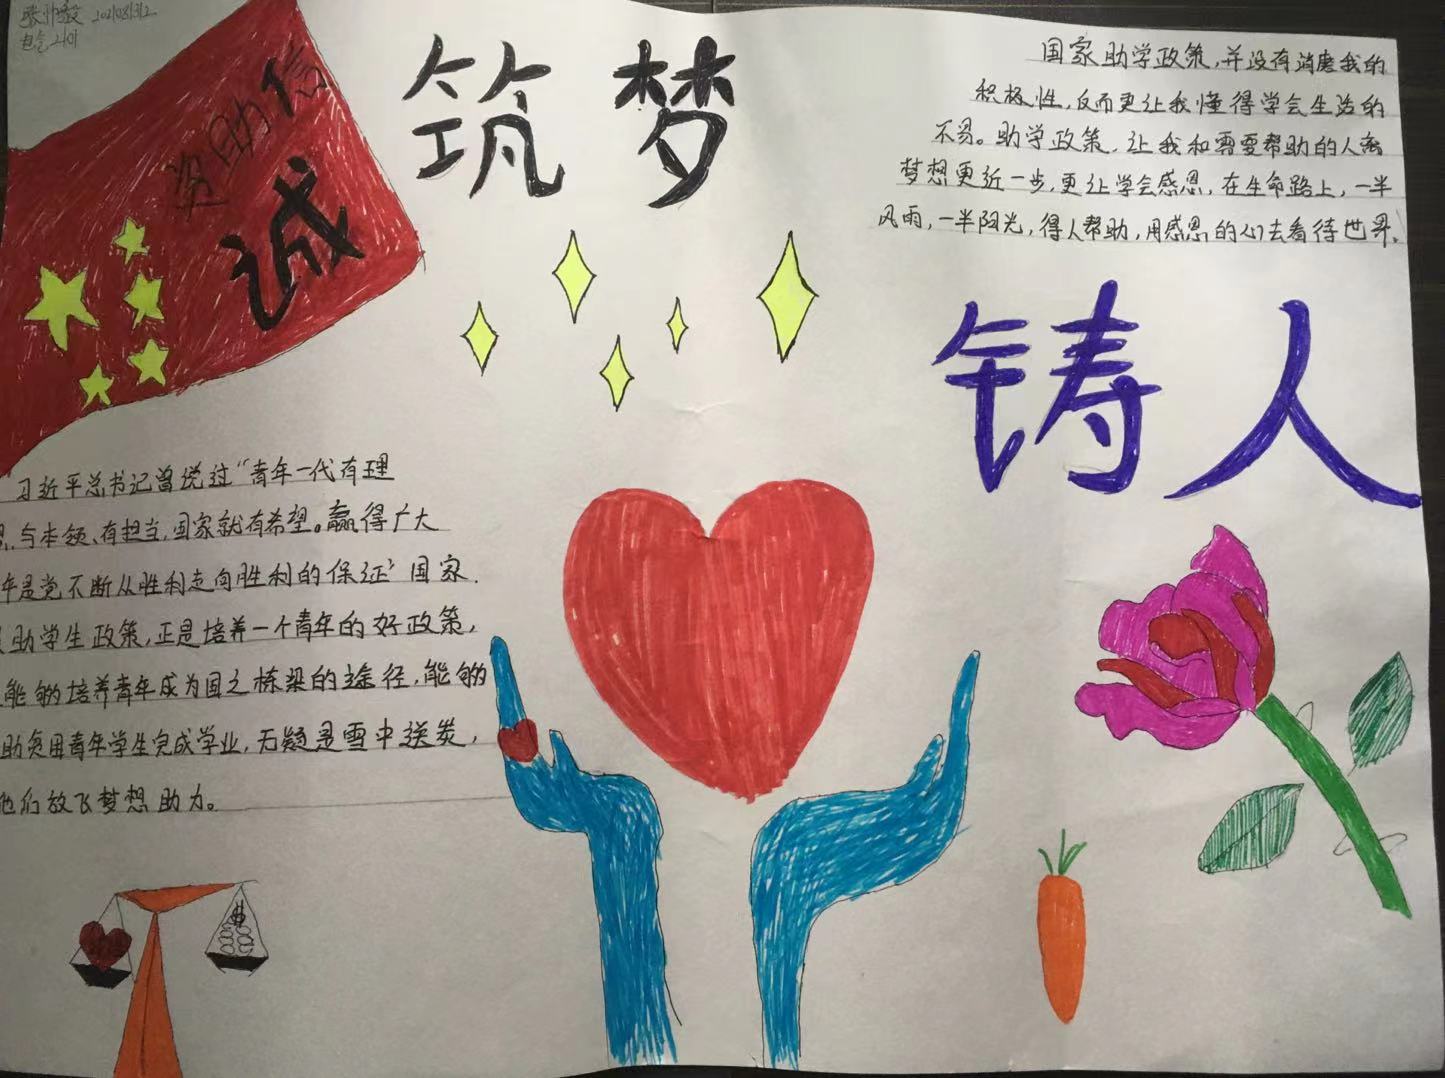 电气2101
资助信
诚
筑梦
国家助学政策,并没有消磨我的
积极性,反而更让我懂得学会生活的
不易。助学政策,让我和需要帮助的人离
梦想更近一步,更让学会感恩,在生命路上,一半
风雨,一半阳光,得人帮助,用感恩的心去看待世界。
铸人
习近平总书记曾说过“青年一代有理
有本领、有担当,国家就有希望。赢得广大
年是党不断从胜利走向胜利的保证”国家.
助学生政策,正是培养一个青年的好政策,
能够培养青年成为国之栋梁的途径,能够
助贫困青年学生完成学业,无疑是雪中送炭,
他们放飞梦想助力。